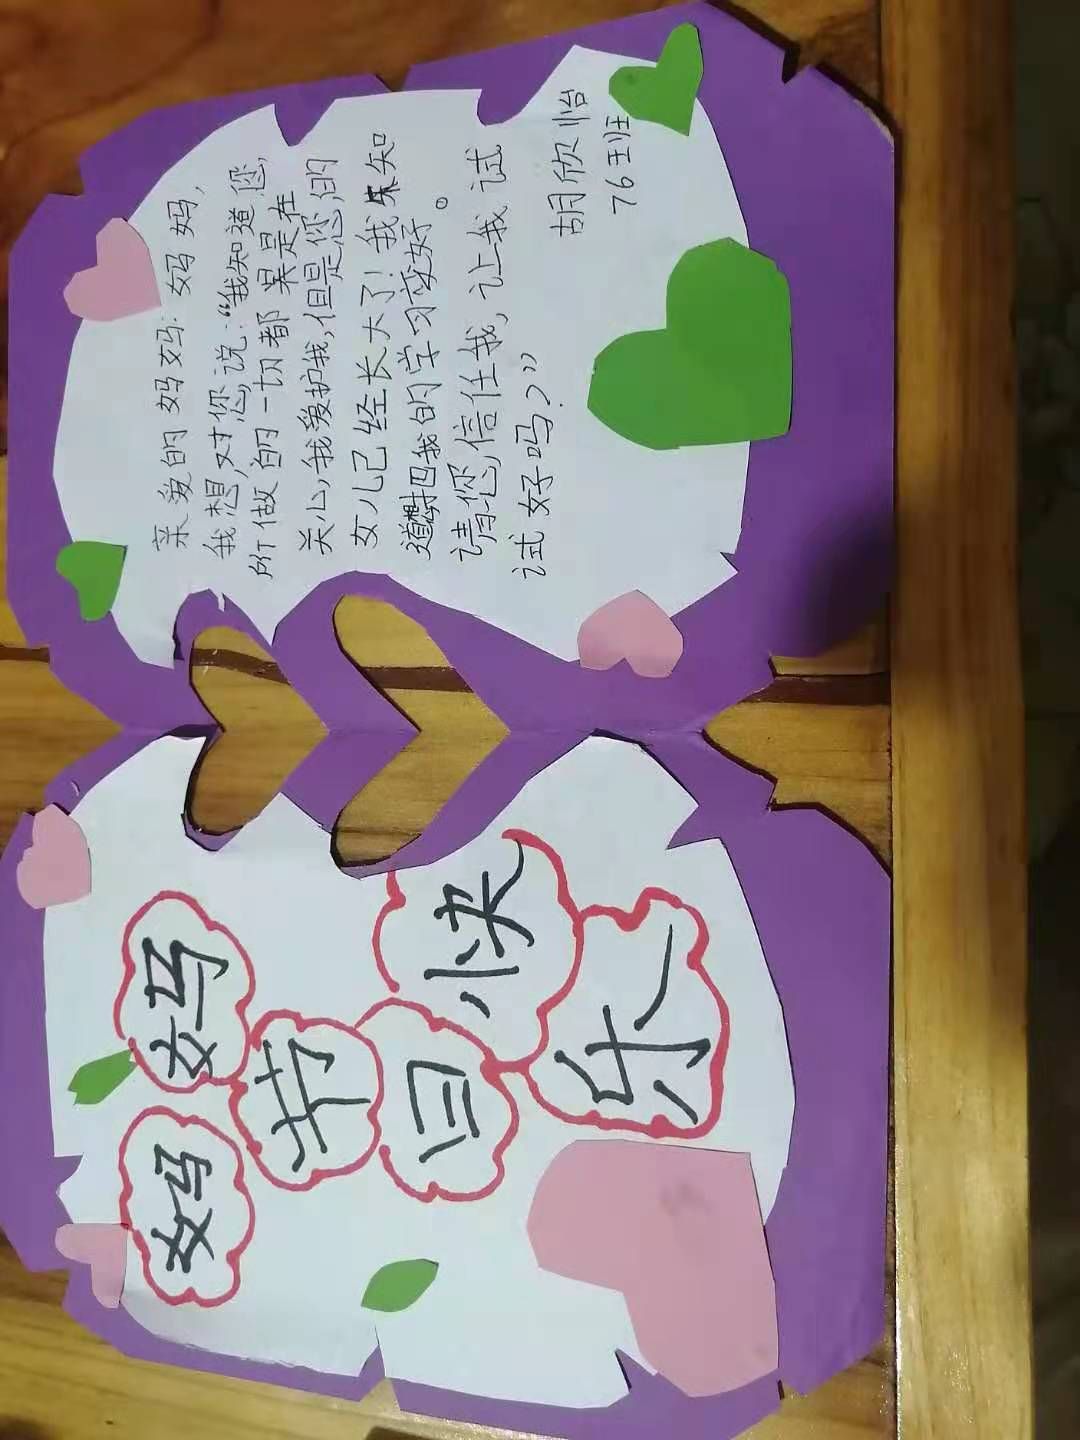 妈妈
节
日快
乐
亲爱的妈妈：妈妈，
我想对您说：“我知道您，
所做的一切都是在
关心我爱护我，但是您的
女儿已经长大了！我知
道把我的学习变好。
请您信任我，让我试
试好吗？”
胡欣怡
76班